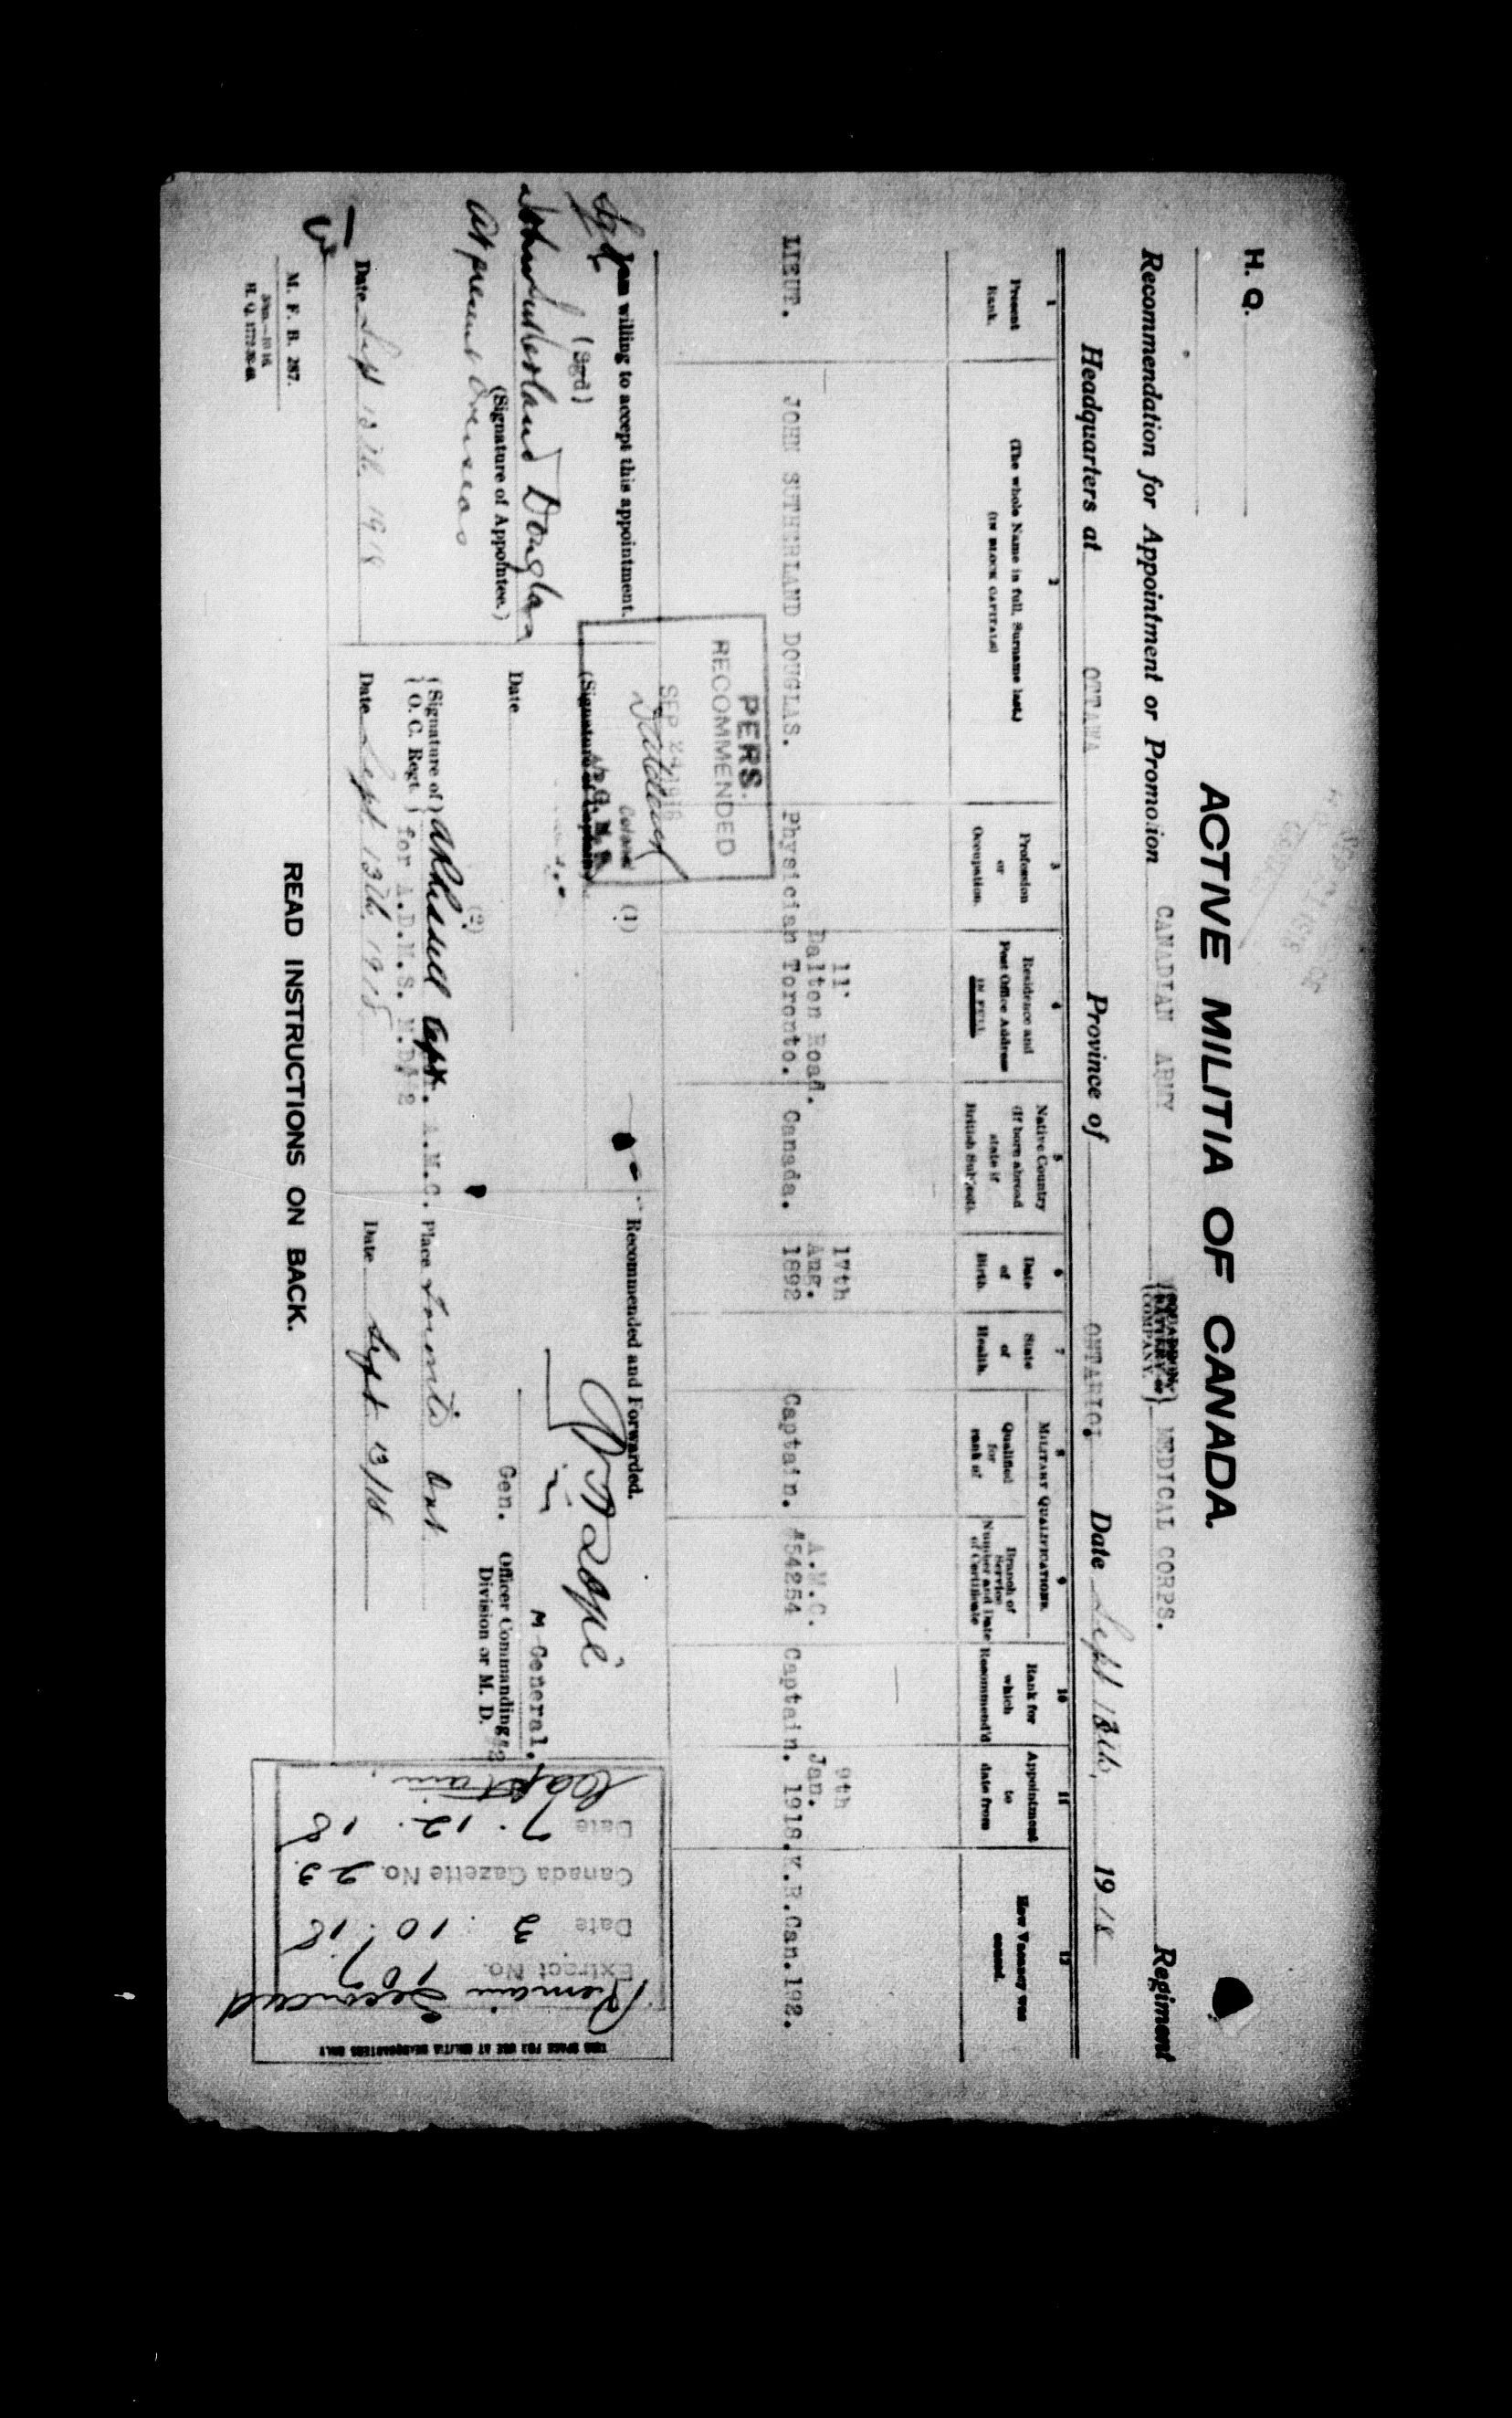 H. Q.
ACTIVE MILITIA OF CANADA.
Recommendation for Appointment or Promotion CANADIAN ARMY {SQUADRON BATTERY or COMPANY.} MEDICAL CORPS. Regiment
Headquarters at OTTAWA Province of ONTARIO. Date Sept 13th, 1918
1 2 3 4 5 6 7 8 MILITARY QUALIFICATIONS. 9 10 11 12
Present Rank.
(The whole Name in full, Surname last.)
(IN BLOCK CAPITALS)
Profession or Occupation.
Residence and Post Office Address IN FULL
Native Country (If born abroad state if British Subject).
Date of Birth.
State of Health.
Qualified for rank of
Branch of Service Number and Date of Certificate
Rank for which Recommend'd
Appointment to date from
How Vacancy was caused.
11 17th 9th
Dalton Road. Aug. A.M.C. Jan.
LIEUT. JOHN SUTHERLAND DOUGLAS. Physician Toronto. Canada. 1892 Captain. #54254 Captain. 1918. K.R.Can.192.
PERS.
RECOMMENDED
SEP 24 1918
Colonel
I am willing to accept this appointment.
(Sgd)
John Sutherland Douglas
(Signature of Appointee.)
At present Overseas
Date Sept 13th. 1918
(1)
(Signature of Captain)
Date
(2)
{Signature of O. C. Regt.} Capt. A.M.C.
for A.D.M.S. M.D.#2
Date Sept 13th 1918
Recommended and Forwarded.
M General.
Gen. Officer Commanding #2
Division or M. D.
Place Toronto Ont
Date Sept 13/18
THIS SPACE FOR USE AT MILITIA HEADQUARTERS ONLY
Remain Seconded
Extract No. 107
Date 3. 10. 18
Canada Gazette No. 23
Date 7. 12. 18
Captain.
M. F. B. 287.
H. Q. 1772-39-
READ INSTRUCTIONS ON BACK.